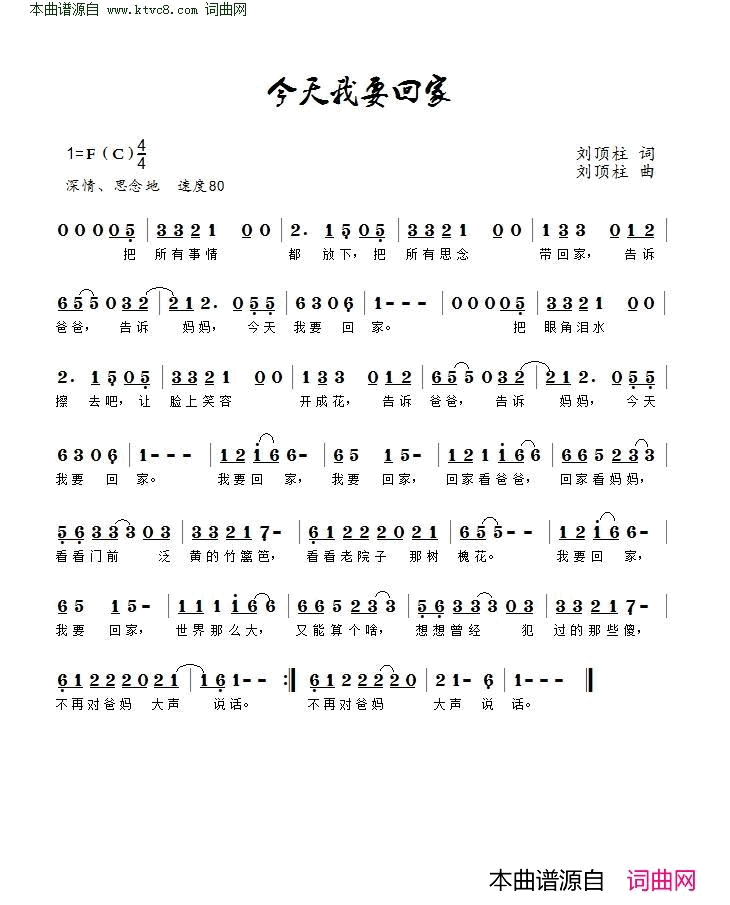 本曲谱源自 www.ktvc8.com 词曲网
今天我要回家
1=F(C)4/4
刘顶柱 词
刘顶柱 曲
深情、思念地 速度80
0 0 0 0 5 | 3 3 2 1 0 0 | 2. 1 5 0 5 | 3 3 2 1 0 0 | 1 3 3 0 1 2 |
把 所有事情 都 放下,把 所有思念 带回家, 告诉
6 5 5 0 3 2 | 2 1 2. 0 5 5 | 6 3 0 6 | 1 - - - | 0 0 0 0 5 | 3 3 2 1 0 0 |
爸爸, 告诉 妈妈, 今天 我要 回 家。 把 眼角泪水
2. 1 5 0 5 | 3 3 2 1 0 0 | 1 3 3 0 1 2 | 6 5 5 0 3 2 | 2 1 2. 0 5 5 |
擦 去吧,让 脸上笑容 开成花, 告诉 爸爸, 告诉 妈妈, 今天
6 3 0 6 | 1 - - - | 1 2 i 6 6 | 6 5 1 5 - | 1 2 1 i 6 6 | 6 6 5 2 3 3 |
我要 回 家。 我要回 家, 我要 回家, 回家看爸爸, 回家看妈妈,
5 6 3 3 3 0 3 | 3 3 2 1 7 - | 6 1 2 2 2 0 2 1 | 6 5 5 - - | 1 2 i 6 6 |
看看门前 泛 黄的竹篱笆, 看看老院子 那树 槐花。 我要回 家,
6 5 1 5 - | 1 1 1 i 6 6 | 6 6 5 2 3 3 | 5 6 3 3 3 0 3 | 3 3 2 1 7 - |
我要 回家, 世界那么大, 又能算个啥, 想想曾经 犯 过的那些傻,
6 1 2 2 2 0 2 1 | 1 6 1 - - :| 6 1 2 2 2 2 0 | 2 1 - 6 | 1 - - - |
不再对爸妈 大声 说话。 不再对爸妈 大声 说 话。
本曲谱源自 词曲网